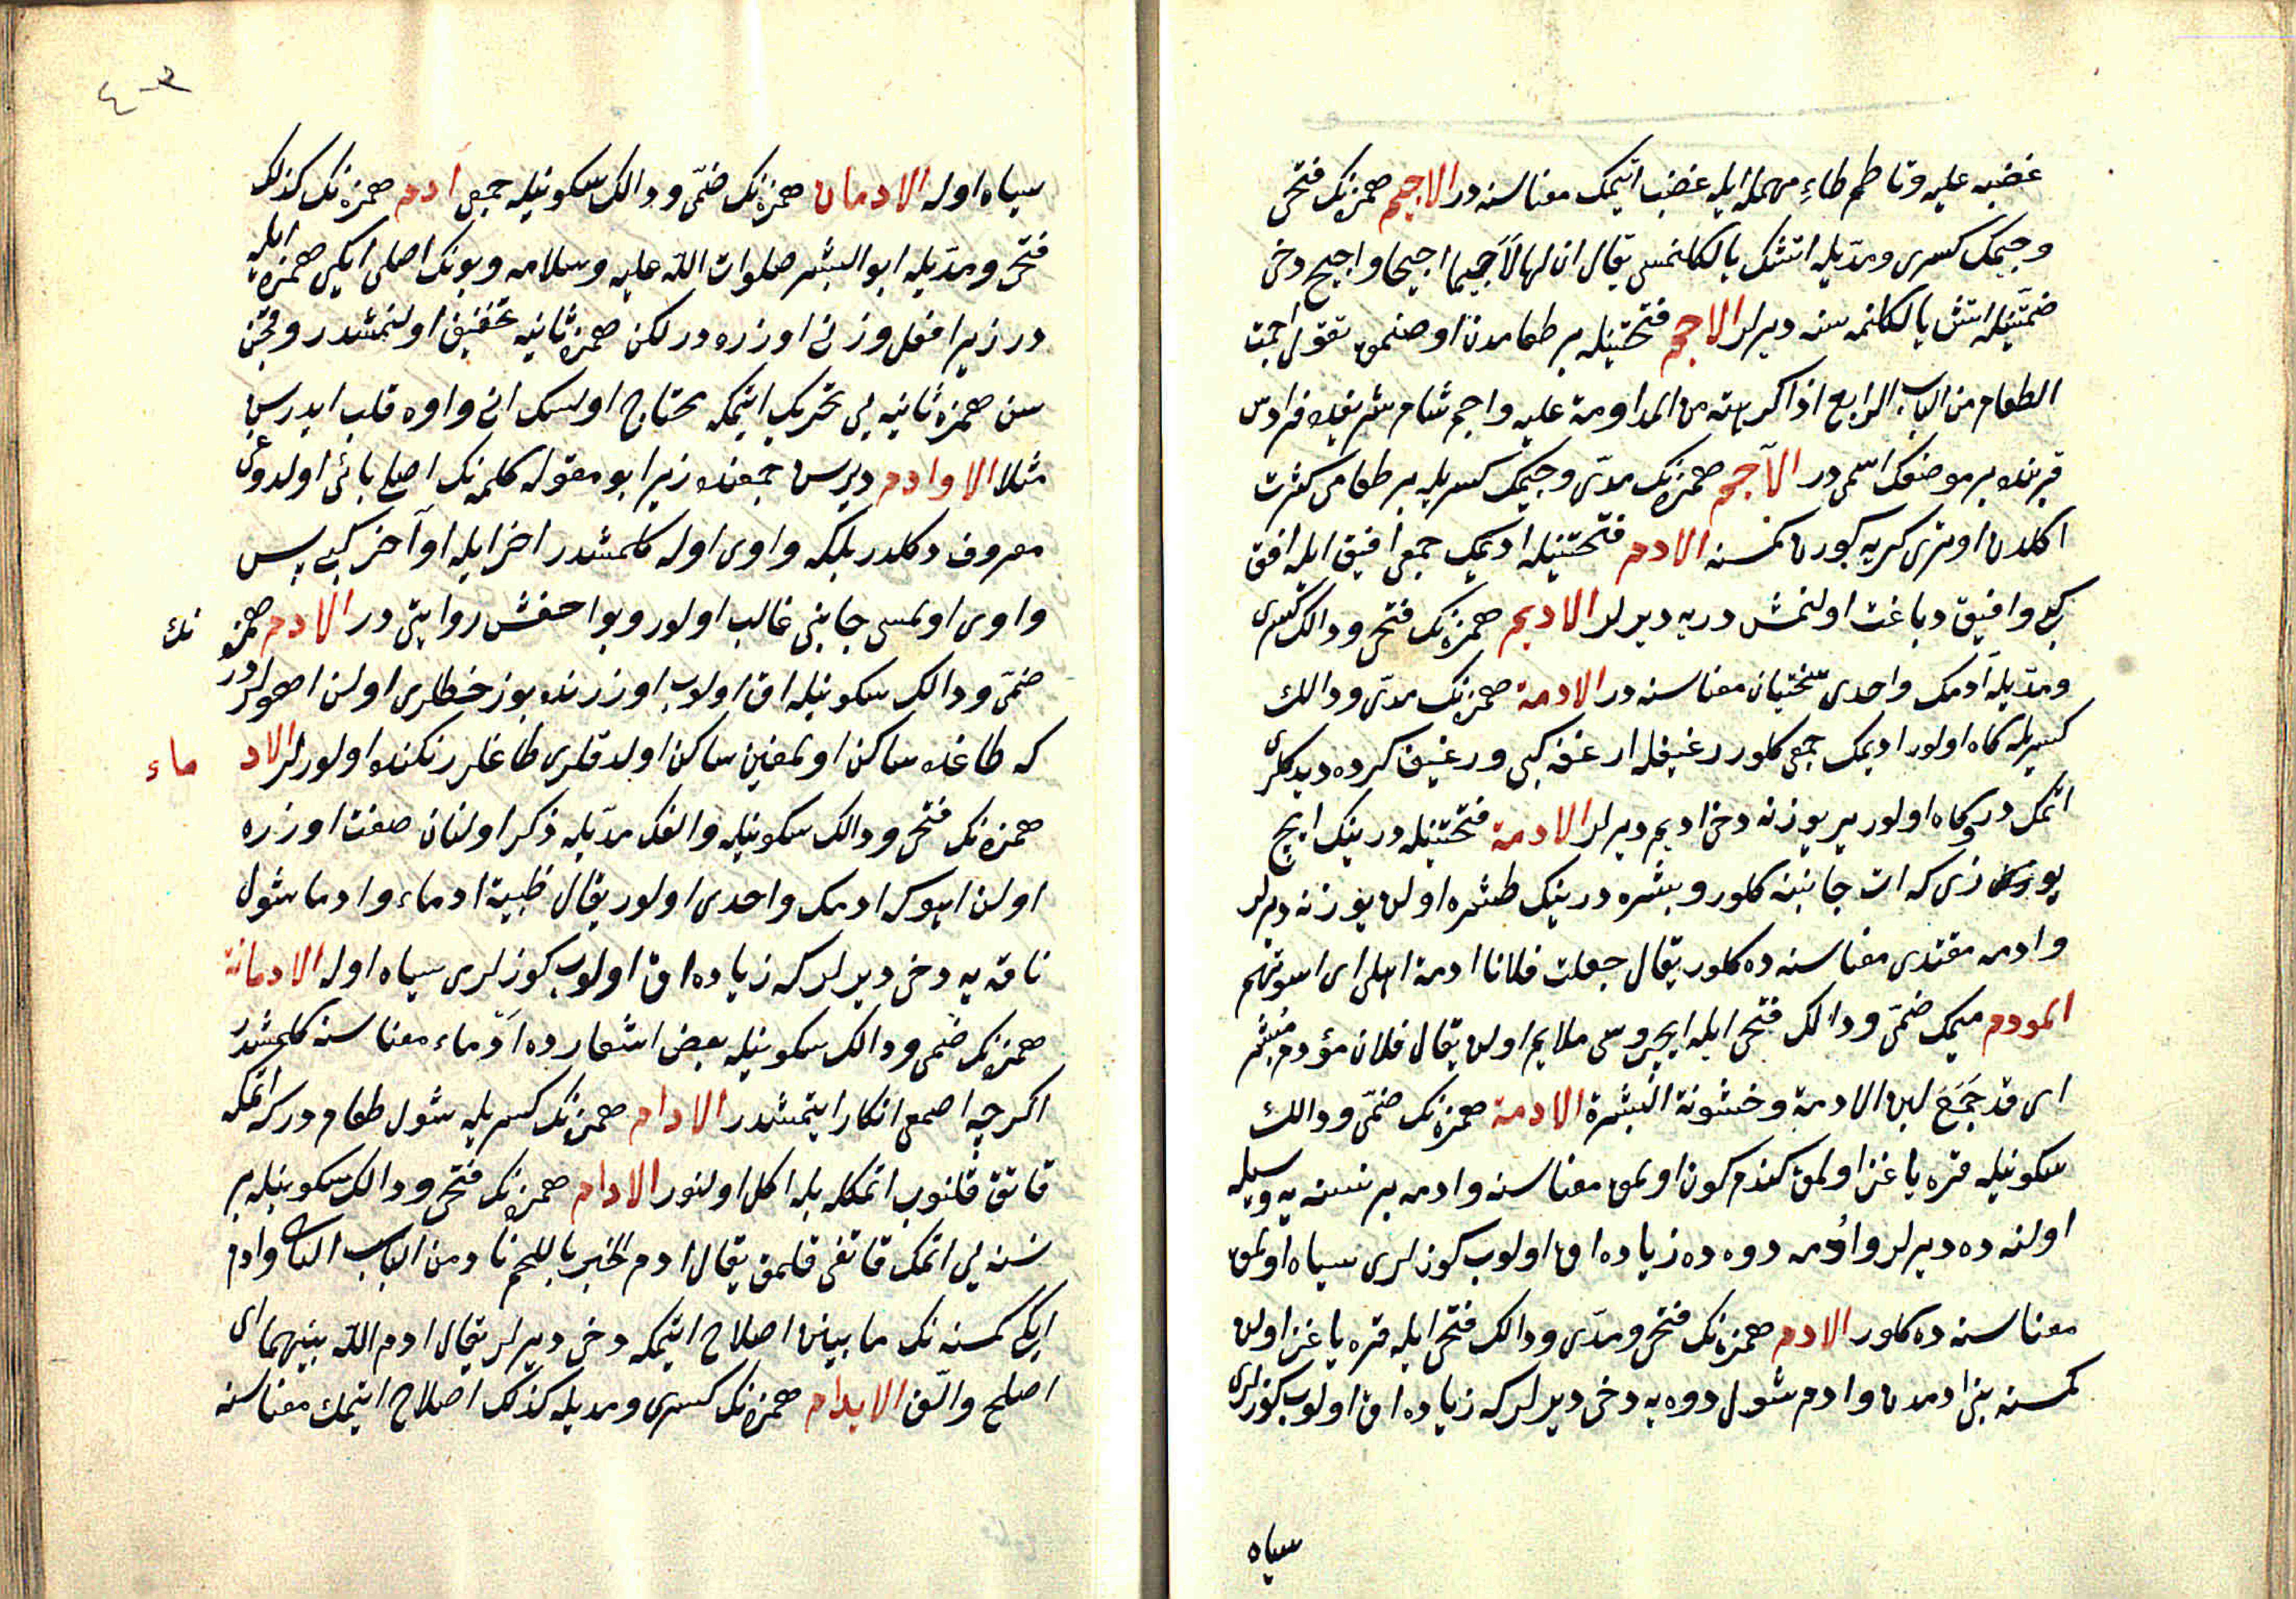 غضبه عليه وتاطم طاء مهمله ايله غضب ايتمك معناسنه در الاجيم همزنك فتحى
وجيمك كسرى ومديله اتشك يالكلنمسى يقال ان لها لاجيما اجيجا واجيج دخى
ضمتينله اتش يالكلنمه سنه ديرلر الاجم فتحتينله بر طعامدن اوصنمق تقول اجمت
الطعام من الباب الرابع اذا كرهته من المداومة عليه واجم شام شريفده فرادس
قربنده بر موضعك اسمى در الآجم همزنك مدى وجيمك كسريله بر طعامى كثرت
اكلدن اوترى كريه كورن كمسنه الادم فتحتينله اديمك جمعى افيق ايله افق
كبى وافيق دباغت اولنمش دريه ديرلر الاديم همزنك فتحى ودالك كسرى
ومديله ادمك واحدى سختيان معناسنه در الادمة همزنك مدى ودالك
كسريله كاه اولور اديمك جمعى كلور رغيفله ارغفه كبى ورغيف كرده ديدكلرى
اتمك در وكاه اولور ير يوزنه دخى اديم ديرلر الادمة فتحتينله درينك ايچ
يوزى كه ات جانبنه كلور وبشره درينك طشره اولن يوزنه ديرلر
وادمه مقتدى معناسنه ده كلور يقال جعلت فلانا ادمة اهلى اى اسوتهم
المودم ميمك ضمى ودالك فتحى ايله ايچروسى ملايم اولن يقال فلان مؤدم مبشر
اى قد جمع لين الادمة وخشونة البشرة الادمة همزنك ضمى ودالك
سكونيله قره ياغز اولمق كندم كون اولمق معناسنه وادمه بر نسنه يه وسيله
اولنه ده ديرلر وادمه دوه ده زياده اق اولوب كوزلرى سياه اولمق
معناسنه ده كلور الادم همزنك فتحى ومدى ودالك فتحى ايله قره ياغز اولن
كمسنه بنى ادمدن وادم شول دوه يه دخى ديرلر كه زياده اق اولوب كوزلرى
سياه
سياه اوله الادمان همزنك ضمى ودالك سكونيله جمعى آدم همزه نك كذلك
فتحى ومديله ابو البشر صلوات الله عليه وسلامه وبونك اصلى ايكى همزه ايله
در زيرا افعل وزنى اوزره در لكن همزه ثانيه تخفيف اولنمشدر وقچن
سن همزه ثانيه يى تحريك ايتمكه محتاج اولسك انى واوه قلب ايدرسن
مثلا الاوادم ديرسن جمعنده زيرا بو مقوله كلمه نك اصلى يائى اولدوغى
معروف دكلدر بلكه واوى اوله كلمشدر اخر ايله اواخر كبى پس
واوى اولمسى جانبى غالب اولور وبو اخفش روايتى در الادم همزه نك
ضمى ودالك سكونيله اق اولوب اوزرنده بوز خطلرى اولن اهولر در
كه طاغده ساكن اولمغين ساكن اولدقلرى طاغلر رنكنده اولورلر الادماء
همزه نك فتحى ودالك سكونيله والفك مديله ذكر اولنان صفت اوزره
اولن اهوكه ادمك واحدى اولور يقال ظبية ادماء وادما شول
ناقه يه دخى ديرلر كه زياده اق اولوب كوزلرى سياه اوله الادمانة
همزنك ضمى ودالك سكونيله بعض اشعارده ادماء معناسنه كلمشدر
اكرچه اصمعى انكار ايتمشدر الادام همزنك كسريله شول طعام در كه اتمكه
قاتق قلنوب اتمكله بله اكل اولنور الادام همزنك فتحى ودالك سكونيله بر
نسنه يى اتمك قاتغى قلمق يقال ادم الخبز باللحم نادمن الباب الثانى وادم
ايكى كمسنه نك مابينن اصلاح ايتمكه دخى ديرلر يقال ادم الله بينهما اى
اصلح والف الايدام همزه نك كسرى ومديله كذلك اصلاح ايتمك معناسنه